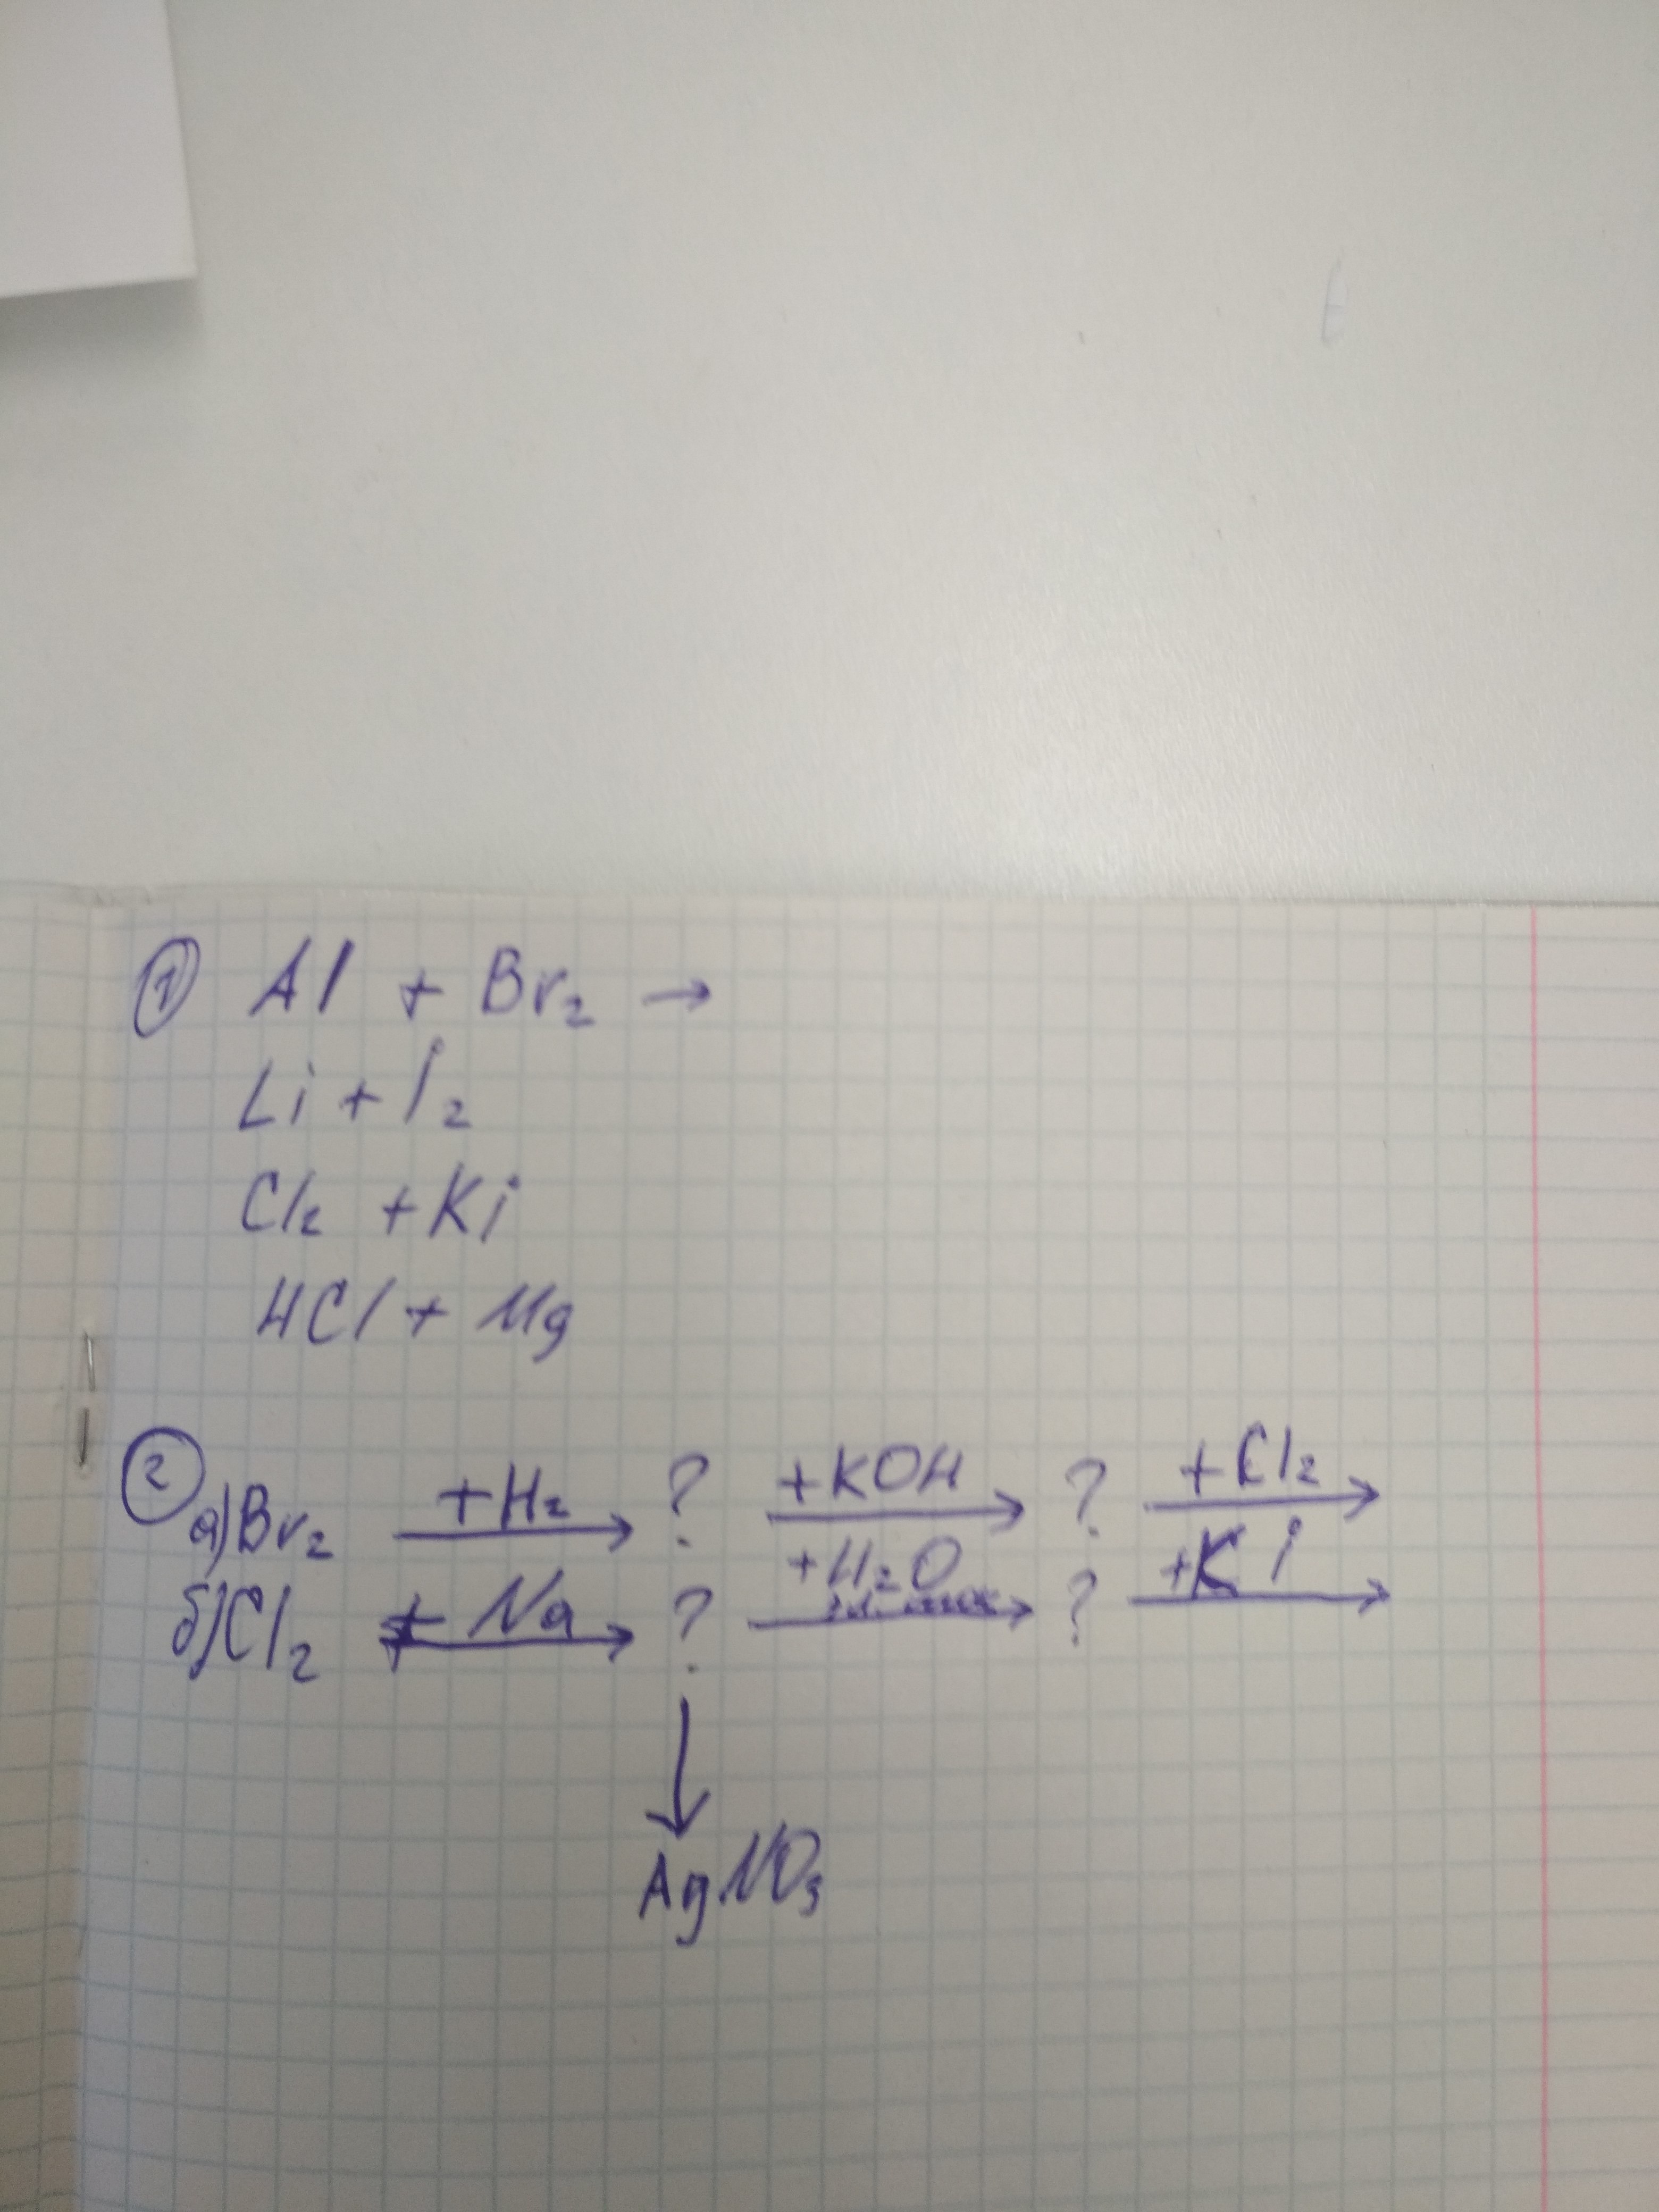 ① Al + Br₂ →
Li + i₂
Cl₂ + Ki
HCl + Mg
② а) Br₂ +H₂ → ? +KOH → ? +Cl₂ →
б) Cl₂ + Na → ? +H₂O → ? +Ki →
↓
AgNO₃